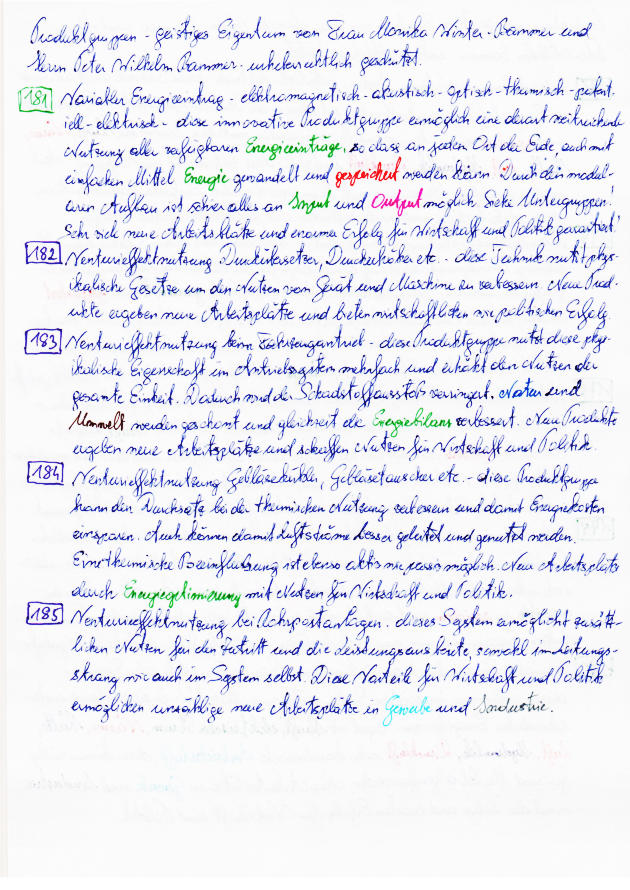 Produktgruppen - geistiges Eigentum von Frau Monika Winter-Bammer und
Herrn Peter Wilhelm Bammer - urheberrechtlich geschützt.
181 Variabler Energieeintrag - elektromagnetisch - akustisch - optisch - thermisch - potent-
iell - elektrisch - diese innovative Produktgruppe ermöglich eine derart weitreichende
Nutzung aller verfügbaren Energieeinträge, so dass an jeden Ort der Erde, auch mit
einfachen Mittel Energie gewandelt und gespeichert werden kann. Durch den modul-
aren Aufbau ist sehr alles an Input und Output möglich. Siehe Untergruppen!
Sehr sich neue Arbeitsplätze und enormer Erfolg für Wirtschaft und Politik garantiert!
182 Venturieffektnutzung Druckübersetzer, Druckerhöher etc. - diese Technik nutzt phys-
ikalische Gesetze um den Nutzen vom Gerät und Maschine zu verbessern. Neue Prod-
ukte ergeben neue Arbeitsplätze und bieten wirtschaftlichen wie politischen Erfolg.
183 Venturieffektnutzung beim Fahrzeugantrieb - diese Produktgruppe nutzt diese phys-
ikalische Eigenschaft im Antriebssystem mehrfach und erhöht den Nutzen der
gesamte Einheit. Dadurch wird der Schadstoffausstoß verringert, Natur und
Umwelt werden geschont und gleichzeit die Energiebilanz verbessert. Neue Produkte
ergeben neue Arbeitsplätze und schaffen Nutzen für Wirtschaft und Politik.
184 Venturieffektnutzung Gebläsekühler, Gebläsetauscher etc. - diese Produktgruppe
kann den Durchsatz bei der thermischen Nutzung verbessern und damit Energiekosten
einsparen. Auch können damit Luftströme besser geleitet und genutzt werden.
Eine thermische Beeinflussung ist ebenso aktiv wie passiv möglich. Neue Arbeitsplätze
durch Energieoptimierung mit Nutzen für Wirtschaft und Politik.
185 Venturieffektnutzung bei Rohrpostanlagen. dieses System ermöglicht zusätz-
lichen Nutzen für den Zutritt und die Leistungsausbeute, sowohl im Leitungs-
strang wie auch im System selbst. Diese Vorteile für Wirtschaft und Politik
ermöglichen unzählige neue Arbeitsplätze in Gewerbe und Industrie.